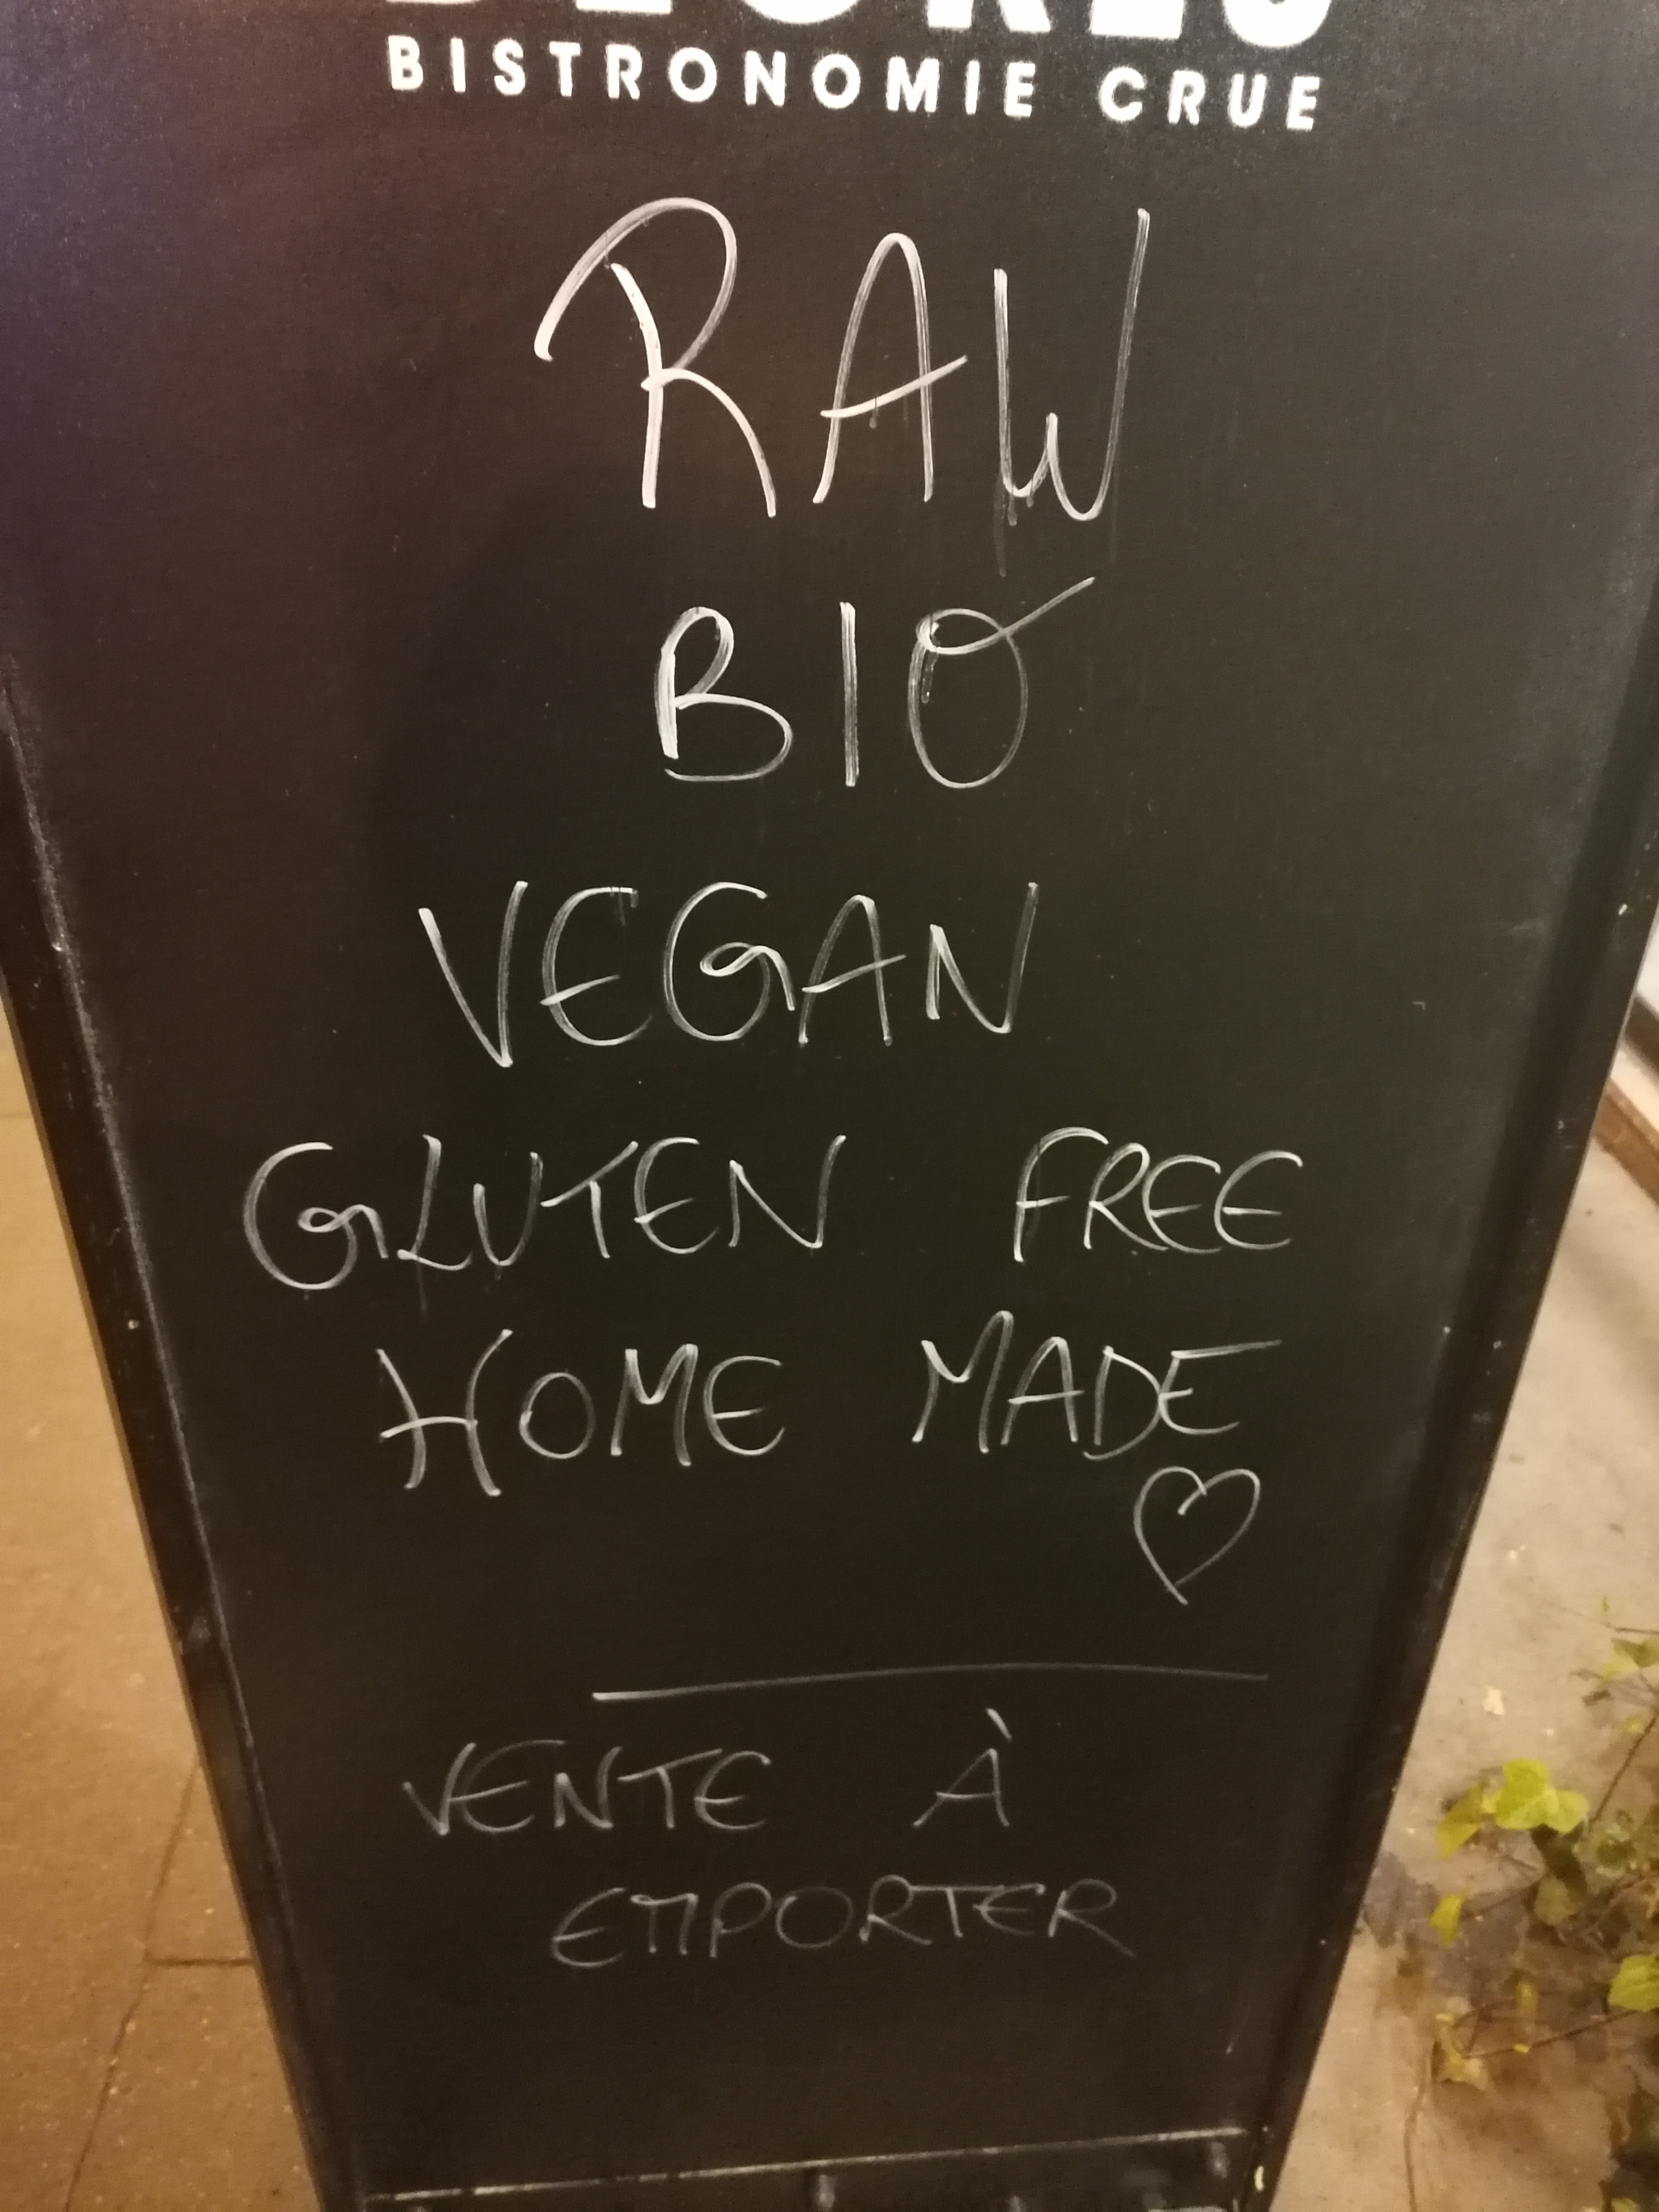 BISTRONOMIE CRUE
RAW
BIO
VEGAN
GLUTEN FREE
HOME MADE
VENTE À
EMPORTER